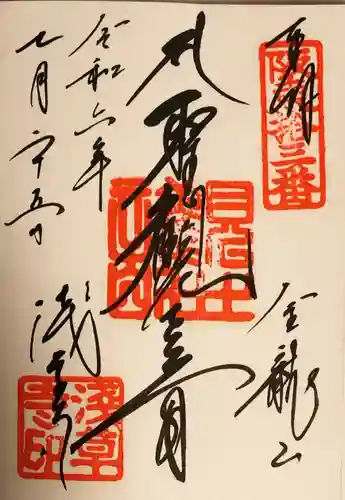 奉拝
坂東拾三番
金龍山
聖観世音
浅草寺
浅草寺印
令和六年
七月二十五日